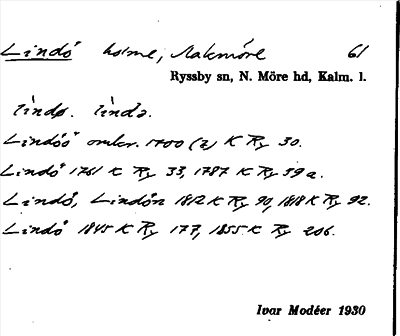 Lindö holme, Rakmöre 61
Ryssby sn, N. Möre hd, Kalm. l.
lìndø. lìndə.
Lindöö omkr. 1700 (2) K Ry 30.
Lindö 1761 K Ry 33, 1787 K Ry 59a.
Lindö, Lindön 1812 K Ry 90, 1818 K Ry 92.
Lindö 1845 K Ry 177, 1855 K Ry 206.
Ivar Modéer 1930